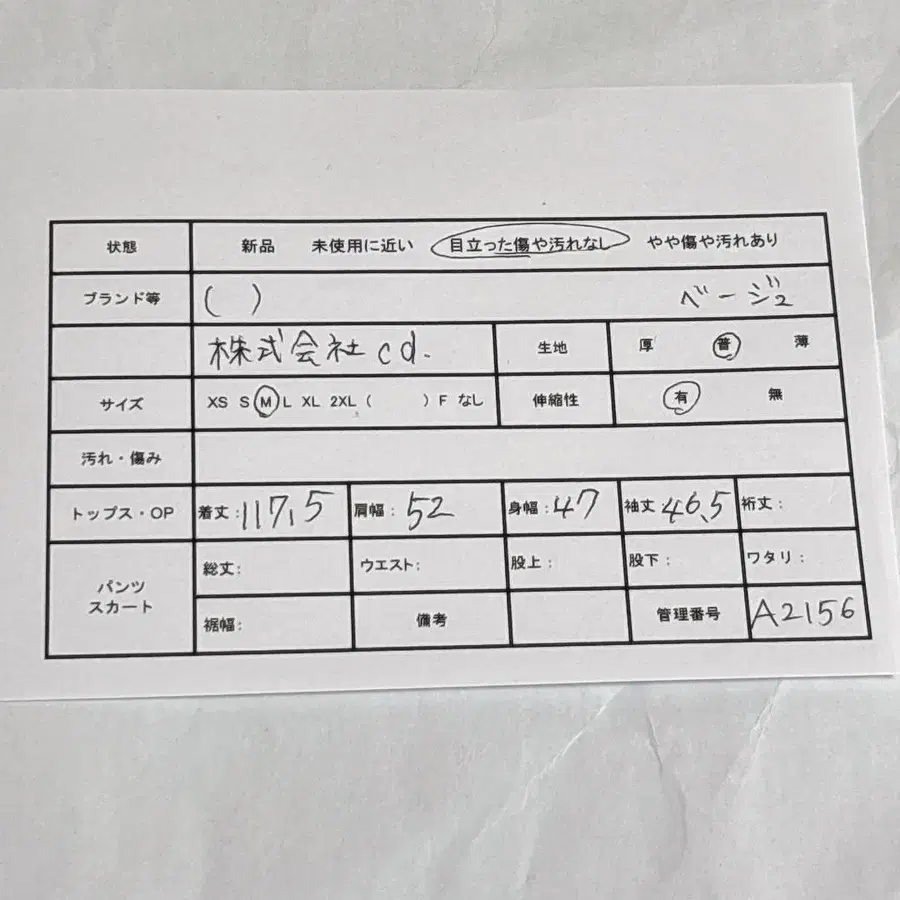 状態 新品 未使用に近い 目立った傷や汚れなし やや傷や汚れあり
ブランド等 ( ) ベージュ
株式会社cd. 生地 厚 普 薄
サイズ XS S M L XL 2XL ( ) F なし 伸縮性 有 無
汚れ・傷み
トップス・OP 着丈:117.5 肩幅:52 身幅:47 袖丈 46.5 裄丈:
パンツ スカート 総丈: ウエスト: 股上: 股下: ワタリ:
裾幅: 備考 管理番号 A2156